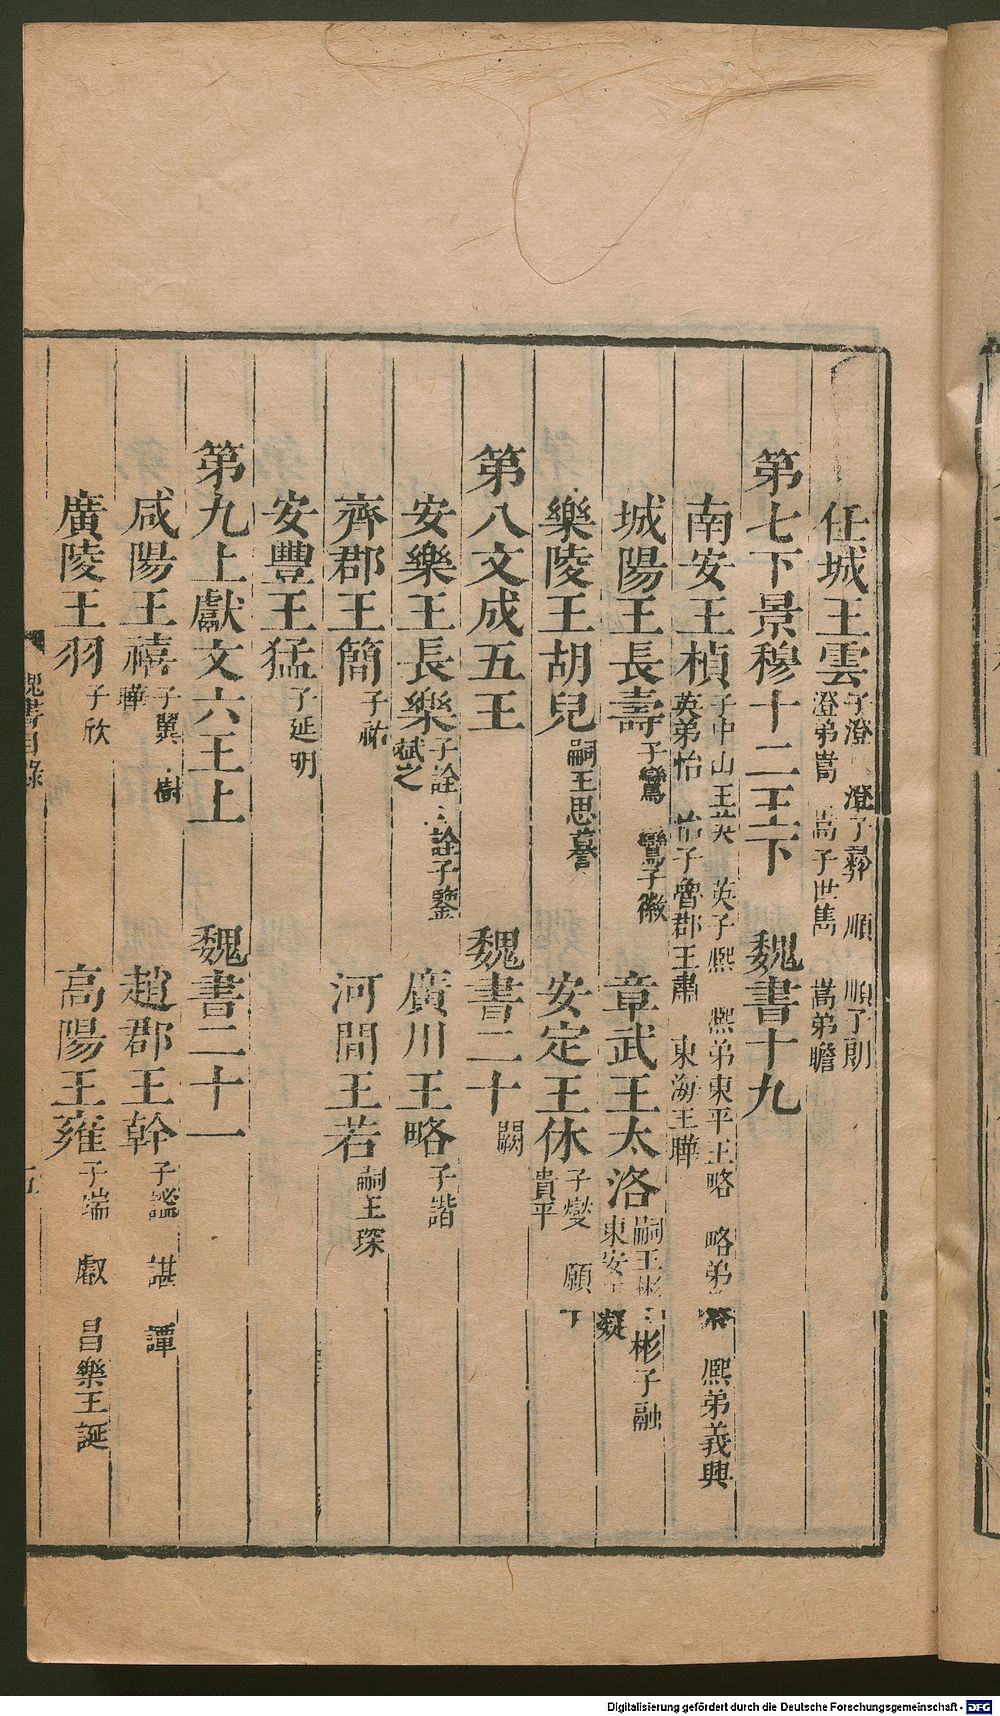 任城王雲 子澄 澄子彝 順 順子朗 澄弟嵩 嵩子世雋 嵩弟瞻
第七下景穆十二王下 魏書十九
南安王楨 子中山王英 英子熙 熙弟東平王略 略弟纂 熙弟義興 英弟怡 怡子魯郡王肅 東海王曄
城陽王長壽 子鸞 鸞子徽 章武王太洛 嗣王彬 彬子融 東安王凝
樂陵王胡兒 嗣王思譽 安定王休 子燮 願平 貴平
第八文成五王 魏書二十 闕
安樂王長樂 子詮 詮子鑒 斌之 廣川王略 子諧
齊郡王簡 子祐 河間王若 嗣王琛
安豐王猛 子延明
第九上獻文六王上 魏書二十一
咸陽王禧 子翼 樹 曄 趙郡王幹 子謐 諶 譚
廣陵王羽 子欣 高陽王雍 子端 叡 昌樂王誕
魏書目錄 五
Digitalisierung gefördert durch die Deutsche Forschungsgemeinschaft - DFG